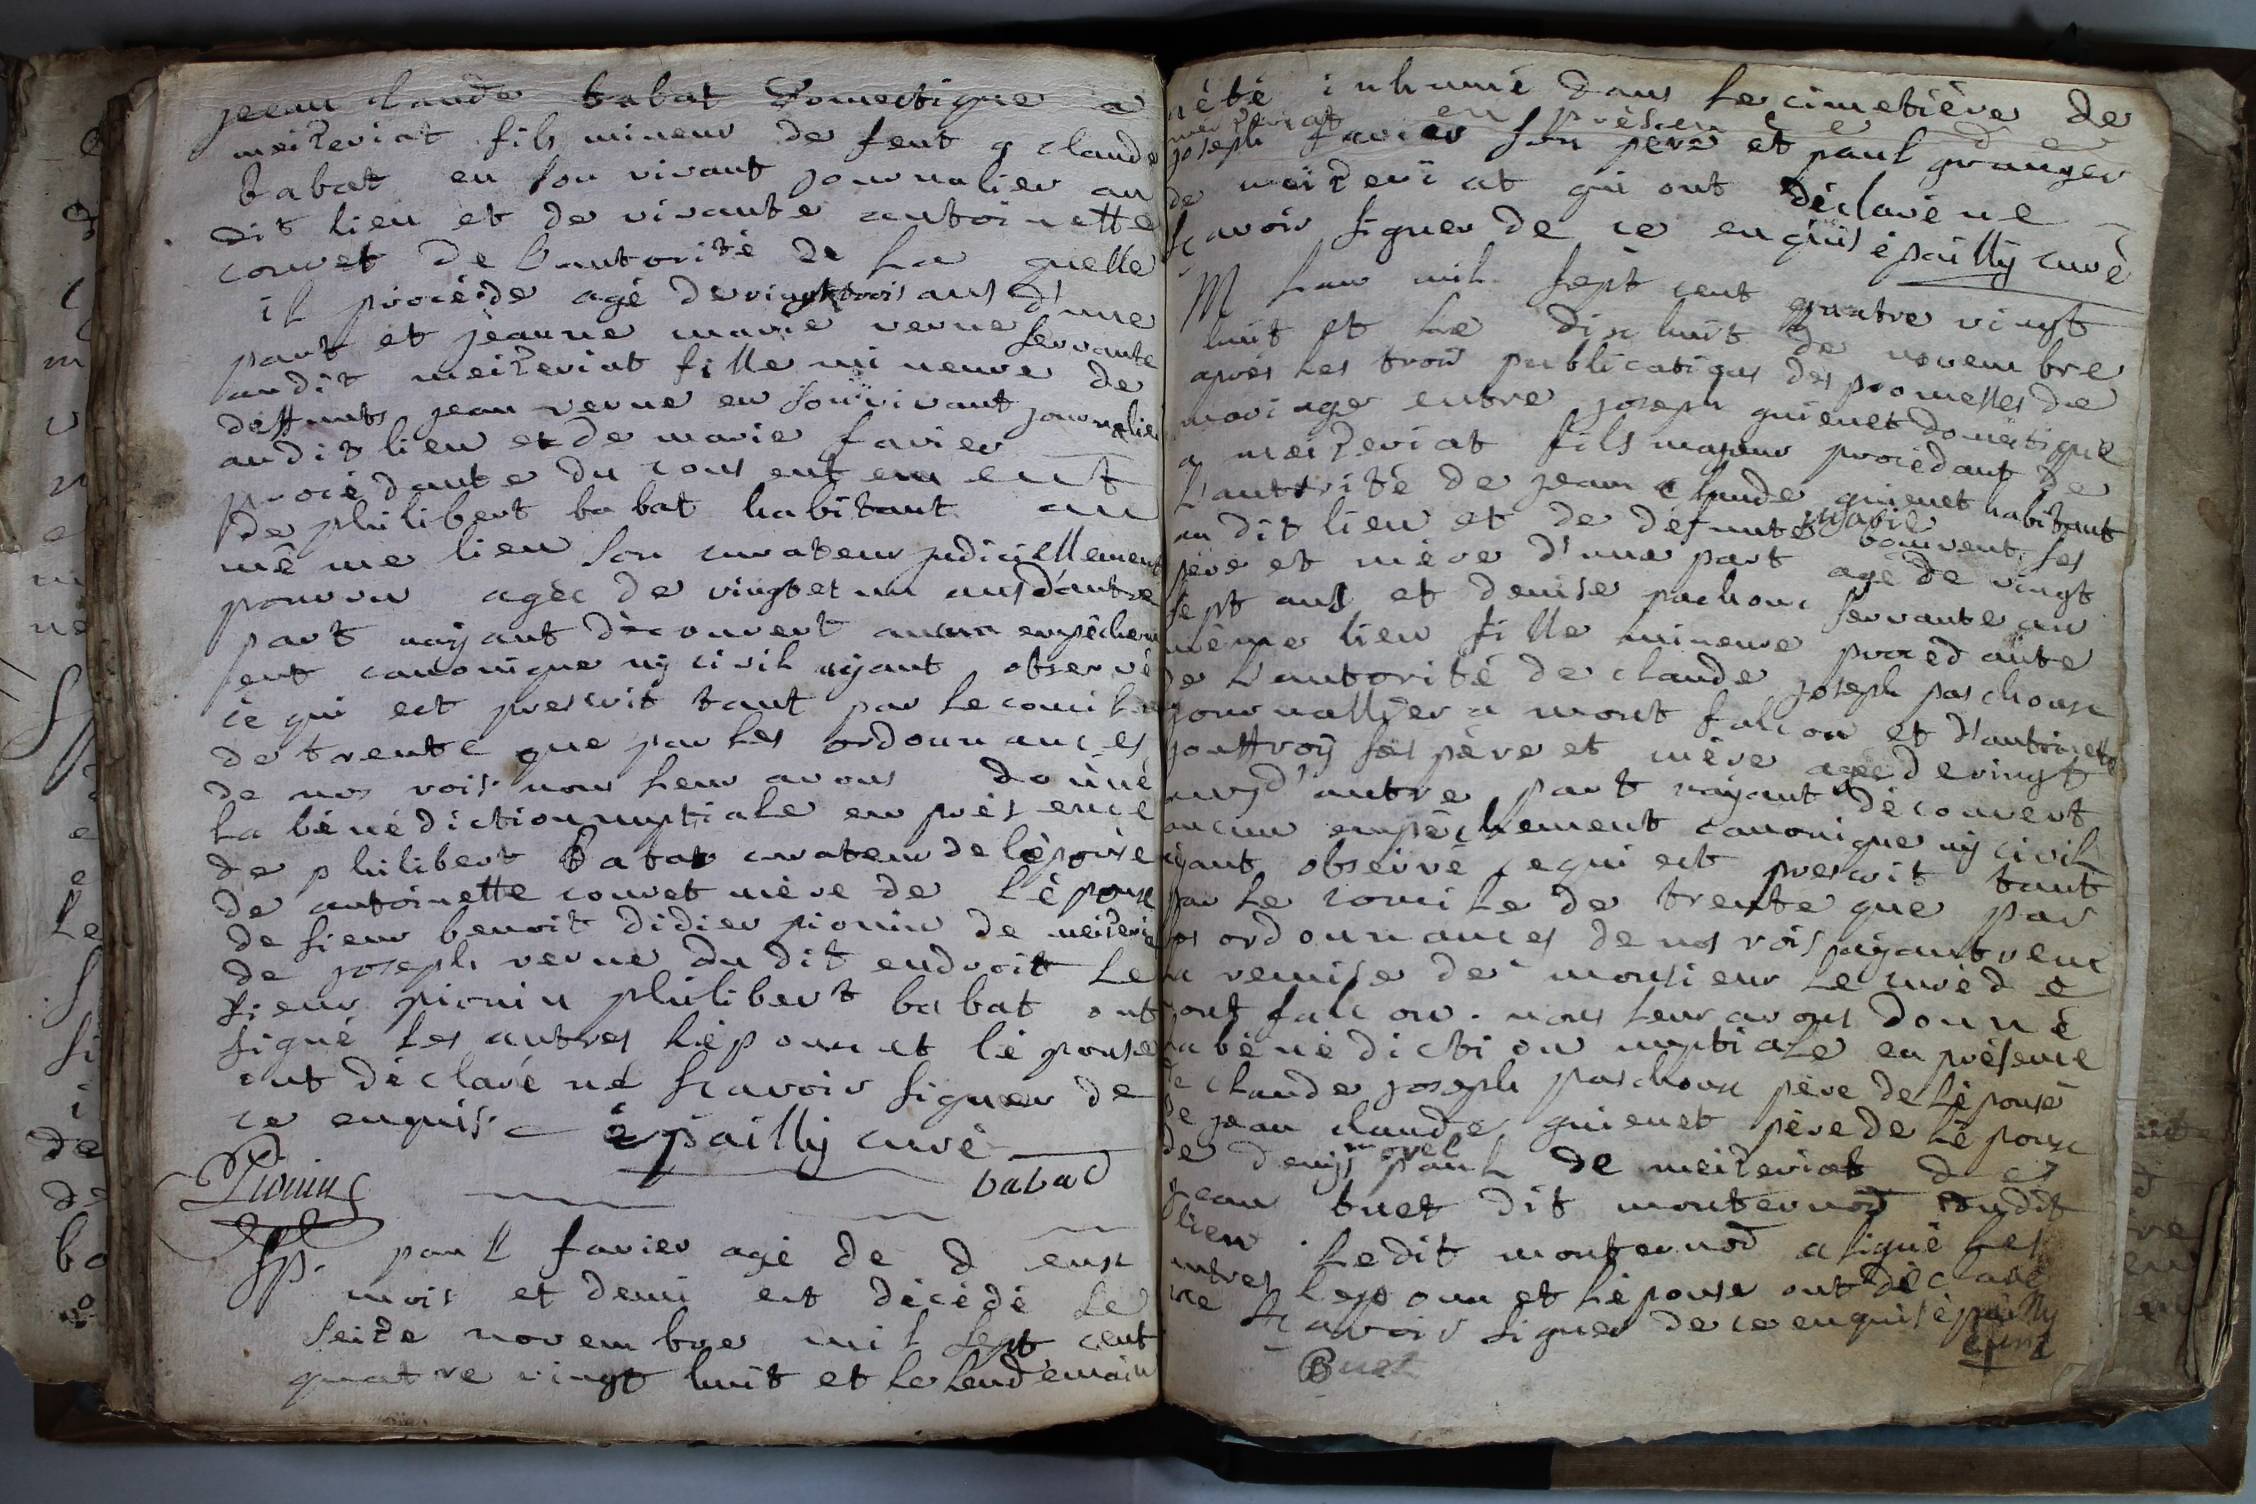 jean claude babat Domestique a
meizeriat fils mineur de feut g claude
babat en son vivant journalier au
dit lieu et de vivante antoinette
couvet de l'autorité de la quelle
il procéde agé de vingt trois ans d'une
part et jeanne marie verne servante
audit meizeriat fille mineure de
deffunts jean verne en son vivant journalier
audit lieu et de marie favier
procédante du consentement
de philibert babat habitant au
même lieu son curateur judiciellement
pourvu agée de vingt et un ans d'autre
part nayant découvert aucun empêchem
ent canonique ny civil ayant observé
ce qui est prescrit tant par le concile
de trente que par les ordonnances
de nos rois nous leur avons donné
la bénédiction nuptiale en présence
de philibert Babat curateur de l'épouse
de antoinette couvet mère de l'époux
de sieur benoit didier pionin de meizeria
de joseph verne du dit endroit le
sieur pionin philibert babat ont
signé les autres l'époux et l'épouse
ont déclaré ne sçavoir signer de
ce enquis épailly curé
Pionin babad
paul favier agé de deux
mois et demi est décédé le
seize novembre mil sept cent
quatre vingt huit et le lendemain
nété inhumé dans le cimetière de
meizeriat en présence de
joseph favier son pere et paul granger
de meizeriat qui ont déclaré ne
sçavoir signer de ce enquis épailly curé
M Lan mil sept cent quatre vingt
huit et le dix huit de novembre
après les trois publications des promesses de
mariage entre joseph guienet domestique
a meizeriat fils majeur procédant de
l'autorité de jean claude guienet habitant
au dit lieu et de défunte marie bouvent ses
père et mère d'une part agé de vingt
sept ans et denise paschoux servante au
même lieu fille mineure procédante
de l'autorité de claude joseph paschoux
journallier a mont falcon et d'antoinette
jouffroy ses père et mère agée de vingt
ans d'autre part nayant découvert
aucun empêchement canonique ny civil
ayant observé ce qui est prescrit tant
par le concile de trente que par
les ordonnances de nos rois ayant veu
la remise de monsieur le curé de
mont falcon. nous leur avons donné
la bénédiction nuptiale en présence
de claude joseph paschoux père de l'épouse
de jean claude guienet père de l'époux
de denys morel paul de meizeriat de
jean buet dit monternod dudit
lieu. Ledit monternod a signé les
autres l'époux et l'épouse ont déclaré
ne sçavoir signer de ce enquis épailly
curé
Buet